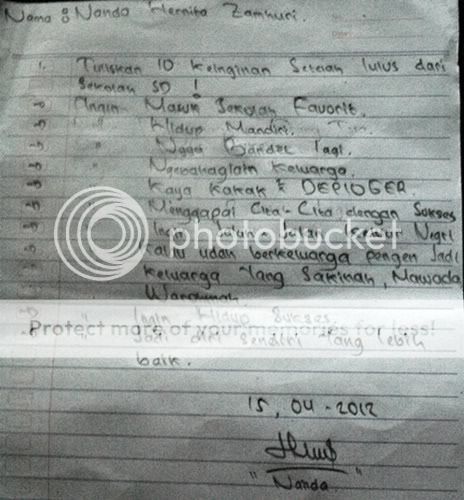 Nama : Nanda Hernita Zamhuri.
1. Tuliskan 10 Keinginan Setelah lulus dari
Sekolah SD !
Ingin Masuk Sekolah Favorit.
" Hidup Mandiri.
" Ngga Bandel lagi.
" Ngebahagiain Keluarga.
" Kaya Kakak
" Menggapai Cita-Cita dengan Sukses
" Ingin
kalau udah berkeluarga pengen Jadi
Keluarga Yang Sakinah, Mawada
Warahmah.
" Ingin Hidup Sukses.
" Jadi diri sendiri Yang lebih
baik.
15, 04 - 2012
" Nanda "
photobucket
Protect more of your memories for less!